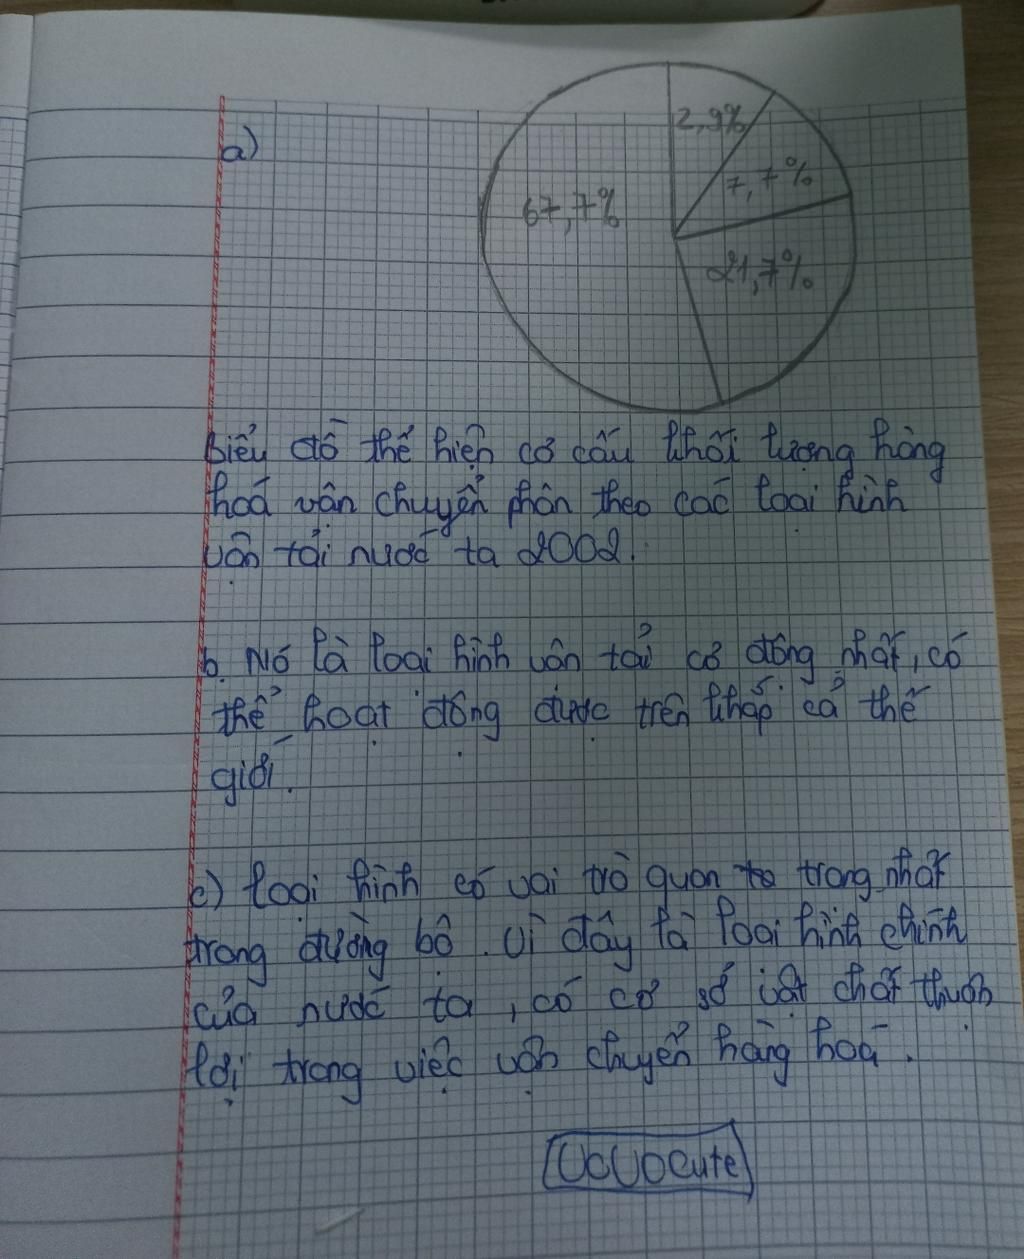 a)
2,9%
7,7%
67,7%
21,7%
Biểu đồ thể hiện cơ cấu khối lượng hàng
hoá vận chuyển phân theo các loại hình
vận tải nước ta 2002.
b. Nó là loại hình vận tải cơ động nhất, có
thể hoạt động được trên khắp cả thế
giới.
c) loại hình có vai trò quan to trọng nhất
trong đường bộ. Vì đây là loại hình chính
của nước ta, có cơ sở vật chất thuận
lợi trong việc vận chuyển hàng hoá.
UcUocute